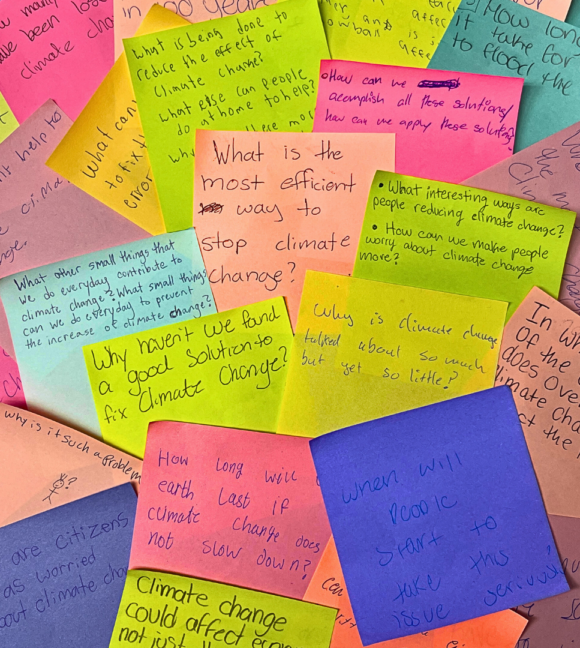 How many
have been lost
climate cha
in 500 years
What is being done to
reduce the effect of
climate change?
What else can people
do at home to help?
How long
it take for
to flood the
•How can we
accomplish all these solutions/
how can we apply these solutions
What can
to fix t
error
help to
clima
ge.
What is the
most efficient
way to
stop climate
change?
• What interesting ways are
people reducing climate change?
• How can we make people
worry about climate change
more?
What other small things that
we do everyday contribute to
climate change? What small things
can we do everyday to prevent
the increase of climate change?
Why haven't we found
a good solution to
fix Climate Change?
Why is climate change
talked about so much
but yet so little?
In Wh
Of the
does Ove
limate Cha
ct the
Why is it such a problem
?
How long will
earth last if
climate change does
not slow down?
When will
people
start to
take this
issue seriously!
are citizens
as worried
out climate cha
can
Climate change
could affect
not just